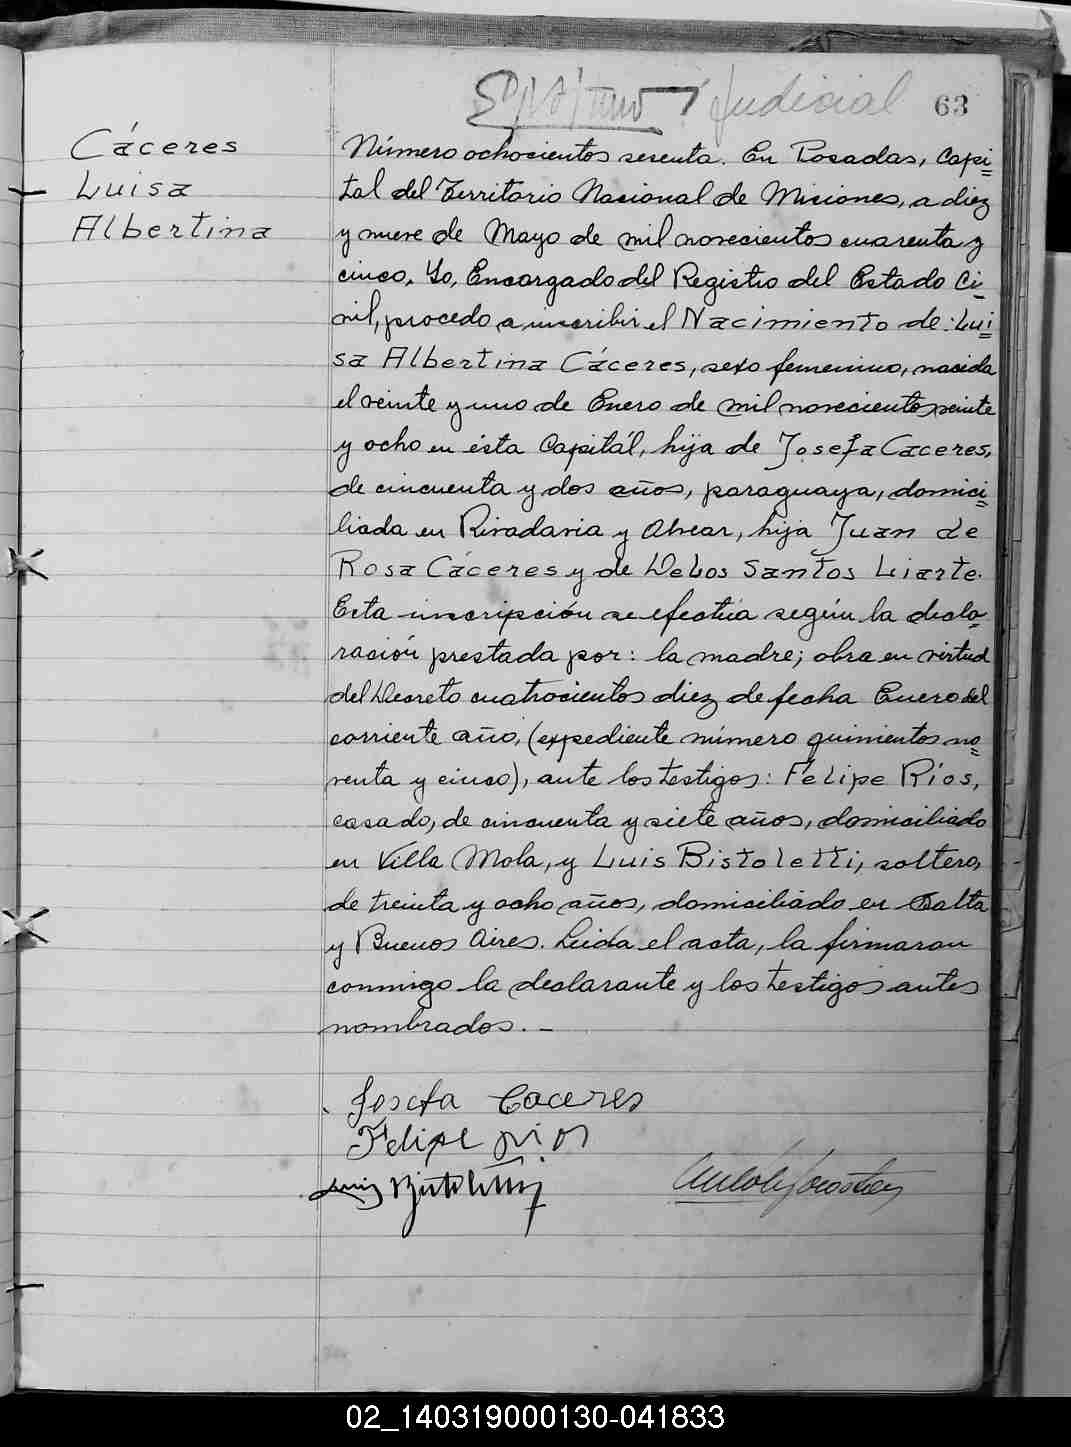 Judicial 63
Cáceres
Luisa
Albertina
Número ochocientos sesenta. En Posadas, Capi=
tal del Territorio Nacional de Misiones, a diez
y nueve de Mayo de mil novecientos cuarenta y
cinco. Yo, Encargado del Registro del Estado Ci=
vil, procedo a inscribir el Nacimiento de: Lui=
sa Albertina Cáceres, sexo femenino, nacida
el veinte y uno de Enero de mil novecientos veinte
y ocho en ésta Capitál, hija de Josefa Caceres,
de cincuenta y dos años, paraguaya, domici=
liada en Rivadavia y Alvear, hija Juan de
Rosa Cáceres y de DeLos Santos Liarte.
Esta inscripción se efectúa según la decla=
ración prestada por: la madre; obra en virtud
del Decreto cuatrocientos diez de fecha Enero del
corriente año, (expediente número quinientos no=
venta y cinco), ante los testigos: Felipe Ríos,
casado, de cincuenta y siete años, domiciliado
en Villa Mola, y Luis Bistoletti, soltero,
de treinta y ocho años, domiciliado en Salta
y Buenos Aires. Leida el acta, la firmaron
conmigo la declarante y los testigos antes
nombrados. -
Josefa Caceres
Felipe rios
Luis Bistoletti
02_140319000130-041833